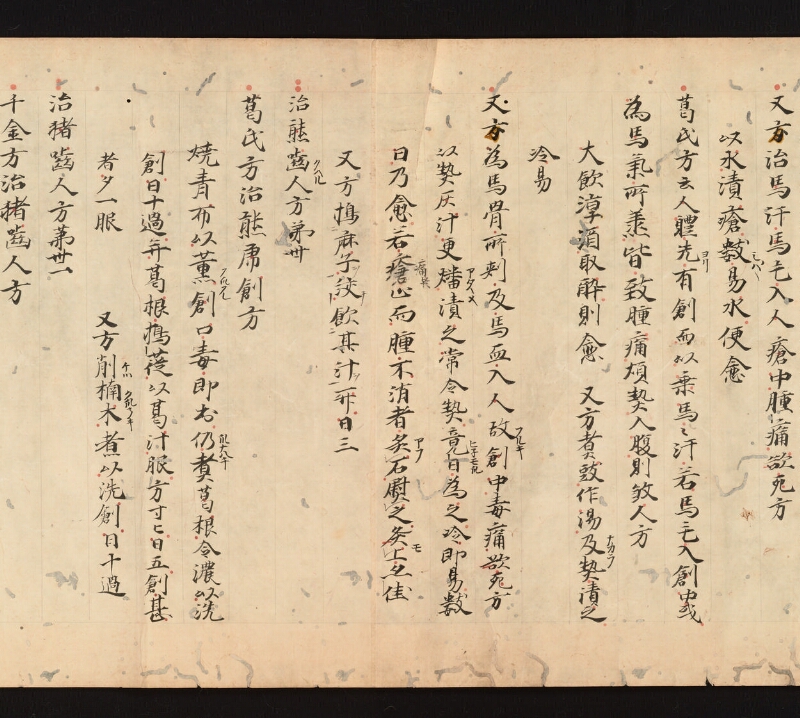 又方治馬汗馬毛入人瘡中腫痛欲死方
以水漬瘡數易水便愈
葛氏方云人體先有創而以乘馬〻汗若馬毛入創中或
為馬氣所蒸皆致腫痛煩熱入腹則致人方
大飲淳酒取酔則愈　又方煮豉作湯及熱漬之
冷易
又方為馬骨所刺及馬血入人故創中毒痛欲死方
以熱灰汁更燔漬之常令熱竟日為之冷即易數
日乃愈若瘡止而腫不消者炙石熨之灸上亦佳
又方搗麻子絞飲其汁一升日三
治熊齧人方第卅
葛氏方治熊虎創方
燒青布以薫創口毒即出仍煮葛根令濃以洗
創日十過并葛根搗篵以葛汁服方寸匕日五創甚
者夕一眠
又方削楠木煮以洗創日十過
治猪齧人方第卅一
千金方治猪齧人方